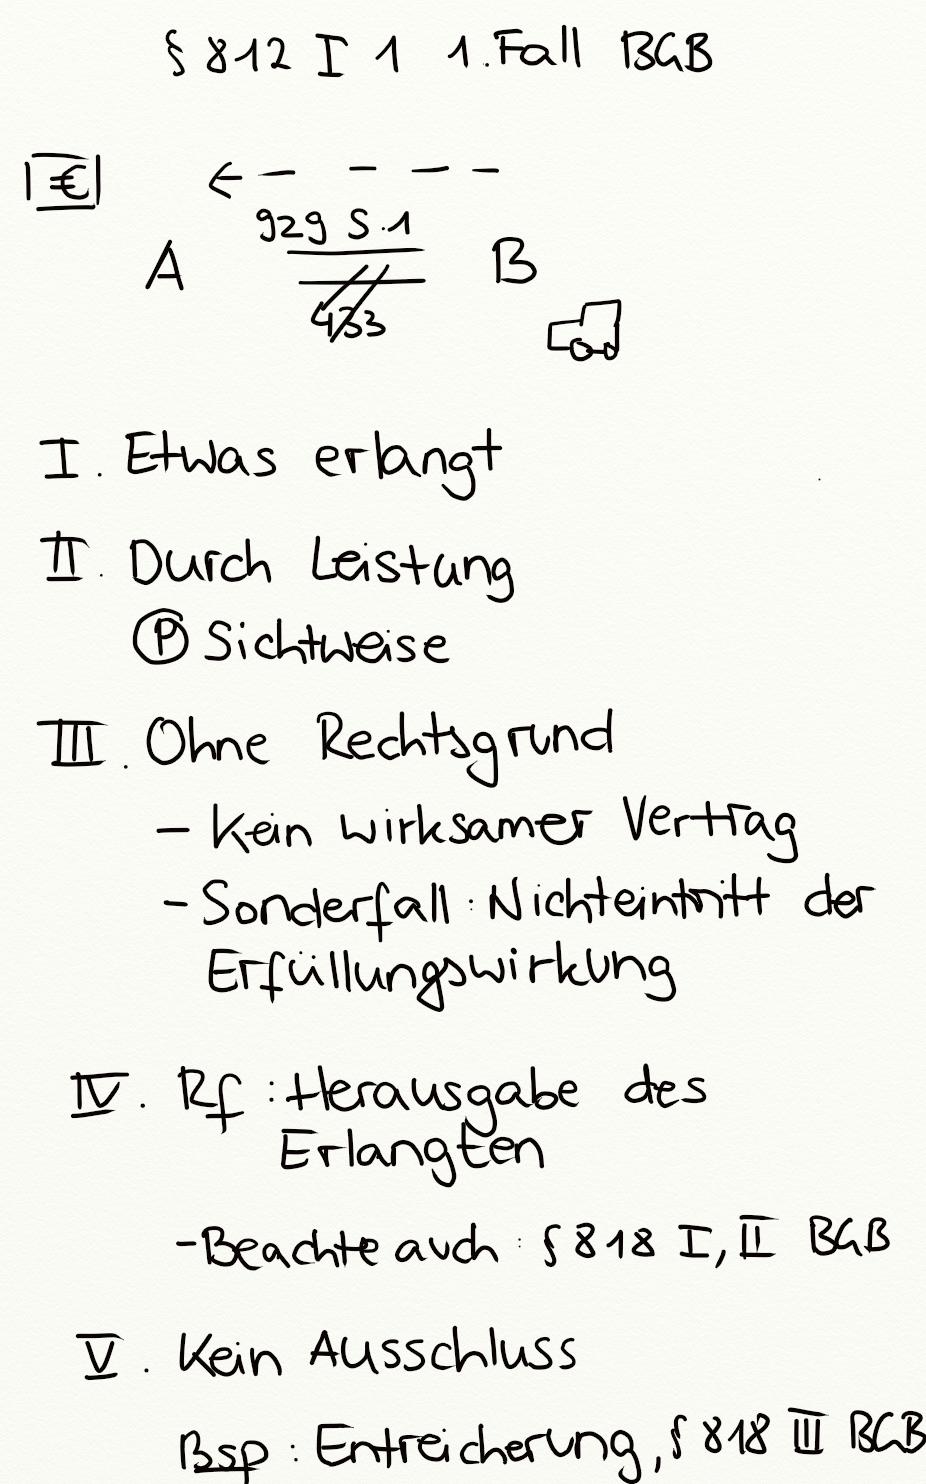 § 812 I 1 1. Fall BGB
€
929 S. 1
A B
433
I. Etwas erlangt
II. Durch Leistung
P Sichtweise
III. Ohne Rechtsgrund
- Kein wirksamer Vertrag
- Sonderfall: Nichteintritt der
Erfüllungswirkung
IV. Rf: Herausgabe des
Erlangten
- Beachte auch: § 818 I, II BGB
V. Kein Ausschluss
Bsp: Entreicherung, § 818 III BGB